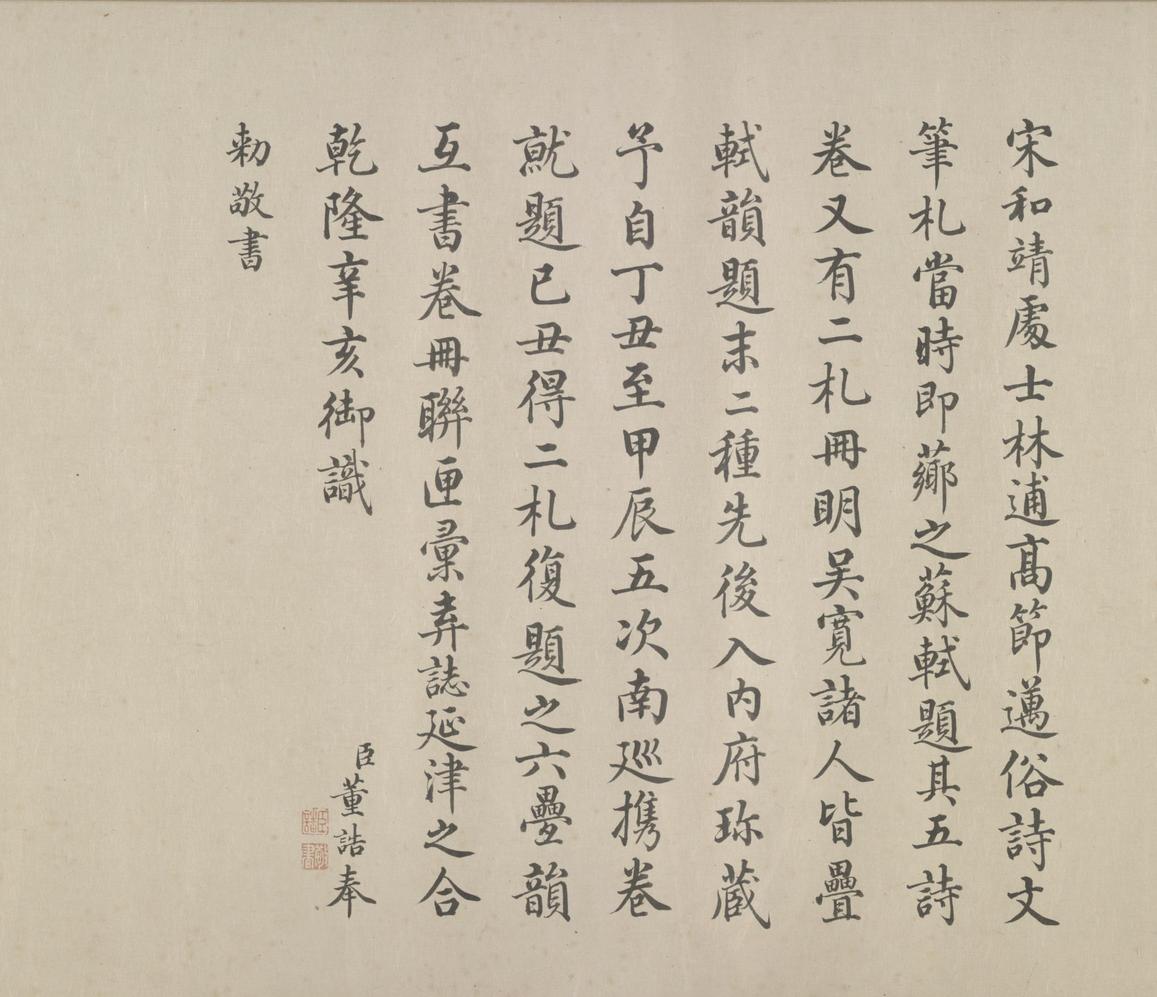 宋和靖處士林逋髙節邁俗詩文
筆札當時即薌之蘇軾題其五詩
卷又有二札冊明吴寛諸人皆疊
軾韻題末二種先後入内府珎藏
予自丁丑至甲辰五次南廵携卷
就題已丑得二札復題之六疊韻
互書卷冊聨匣彚弆誌延津之合
乾隆辛亥御識
臣董誥奉
勅敬書